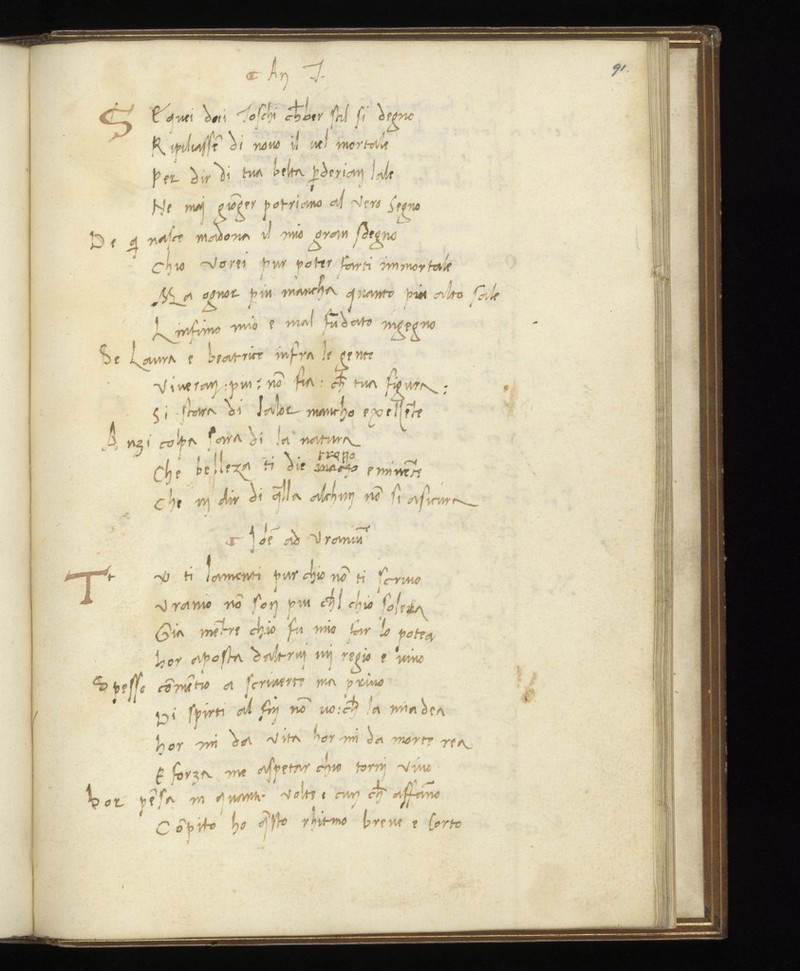 An T.
91.
SE quei doi Toschi ch̄ ber stil si degno
Ripiliassē di novo il vel mortale
Per dir di tua belta p̄derian lale
Ne maj giōger potriano al vero segno
De q̄ nasce madona il mio gran sdegno
Chio vorei pur poter farti immortale
Ma ognor piu mancha quanto piu alto sale
Linfimo mio e mal fūdato ingegno
Se Laura e beatrice infra le gente
Viveran: pur: nō fia: ch̄ tua figura:
Si stara di lalor mancho exellēte
Anzi colpa sara di la natura
Che belleza ti die troppo eminēte
Che in dir di q̄lla alchun nō si asicura
Idē ad Uraniū
Tt V ti lamenti pur chio nō ti scrivo
Uranio nō son piu ch̄l chio solea
Gia mētre chio fu mio far lo potea
hor aposta daltrui mi regio e vivo
Spesso comētio a scriverte ma privo
Di spirti al fin nō vo: ch̄ la mia dea
hor mi da vita hor mi da morte rea
E forza me aspetar chio torni vivo
hor pēsa in quante volte e cun ch̄ affāno
Cōpito ho q̄sto rhitmo breve e corto